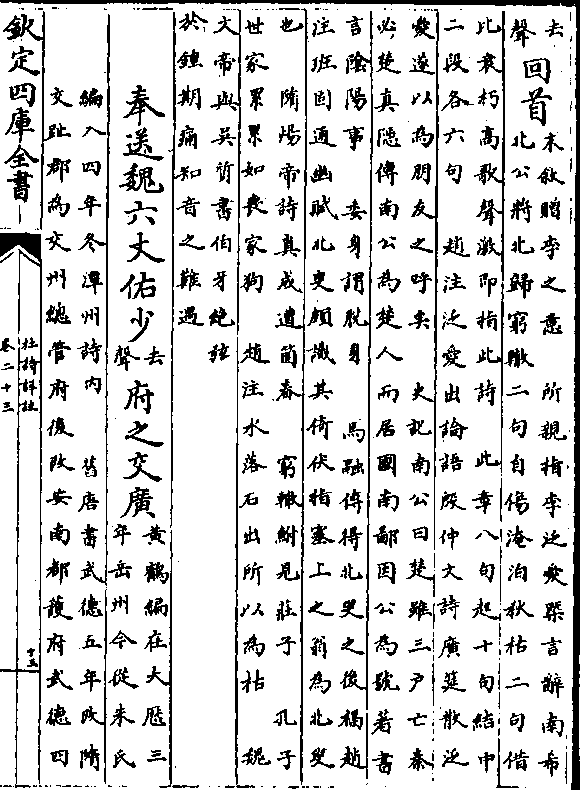 去聲回首末敘贈李之意 所親指李泛愛槩言辭南希
北公將北歸窮轍二句自傷淹泊秋枯二句借
比衰朽高歌聲激即指此詩 此章八句起十句結中
二段各六句 趙注泛愛出論語殷仲文詩廣筵散泛
愛遂以為朋友之呼矣 史記南公曰楚雖三戶亡秦
必楚真隱傳南公為楚人而居國南鄙因公為號著書
言陰陽事 委身謂脫身 馬融傳得北叟之後禍趙
注班固通幽賦北叟頗識其倚伏指塞上之翁為北叟
也 隋煬帝詩真成遣箇春 窮轍鮒見莊子 孔子
世家累累如喪家狗 趙注水落石出所以為枯 魏
文帝與吳質書伯牙絕絃
於鍾期痛知音之難遇
奉送魏六丈佑少去聲府之交廣黄鶴編在大厯三
年岳州今從朱氏
編入四年冬潭州詩内 舊唐書武德五年改隋
交趾郡為交州總管府後改安南都護府武德四
欽定四庫全書
杜詩詳註
卷二十三
十五